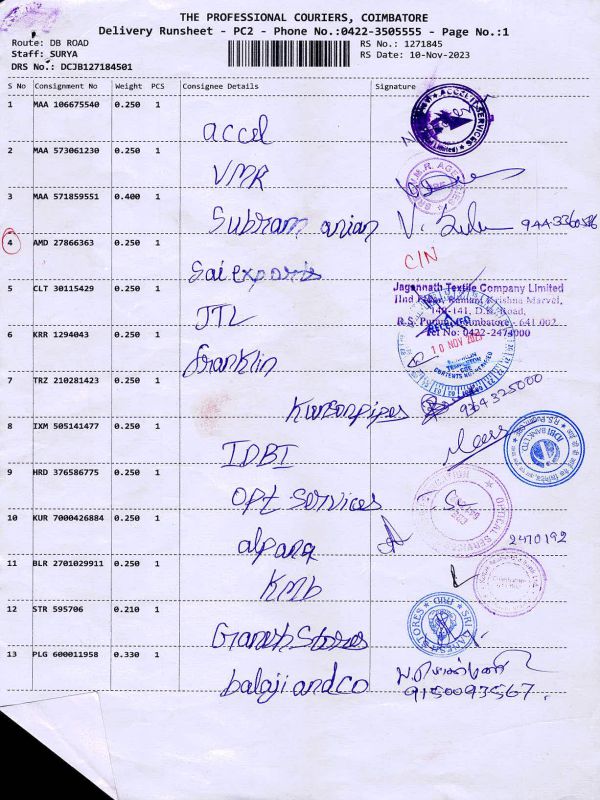 THE PROFESSIONAL COURIERS, COIMBATORE
Delivery Runsheet - PC2 - Phone No.:0422-3505555 - Page No.:1
Route: DB ROAD
RS No.: 1271845
Staff: SURYA
RS Date: 10-Nov-2023
DRS No.: DCJB127184501
S No Consignment No Weight PCS Consignee Details Signature
1 MAA 106675540 0.250 1
accel
ACCEL IT SERVICES
2 MAA 573061230 0.250 1
VMR
3 MAA 571859551 0.400 1
Subramanian V. 9443360586
4 AMD 27866363 0.250 1
Sai exports C/N
5 CLT 30115429 0.250 1
JTL
Jagannath Textile Company Limited
Krishna Marvel,
140-141, D.B. Road,
R.S. Puram, Coimbatore - 641 002
Tel No: 0422-2474000
6 KRR 1294043 0.250 1
franklin
RECEIVED
10 NOV 2023
FRANKLIN
TEMPLETON
CBE
CONTENTS NOT VERIFIED
7 TRZ 210281423 0.250 1
9364325000
8 IXM 505141477 0.250 1
IDBI
IDBI BANK LTD.
9 HRD 376586775 0.250 1
opt services
OPTICAL SERVICE
10 KUR 7000426884 0.250 1
alpana 2470192
11 BLR 2701029911 0.250 1
KMb
12 STR 595706 0.210 1
Ganesh Stores
SRI GANESH STORES
13 PLG 600011958 0.330 1
balaji and co
9150093567.